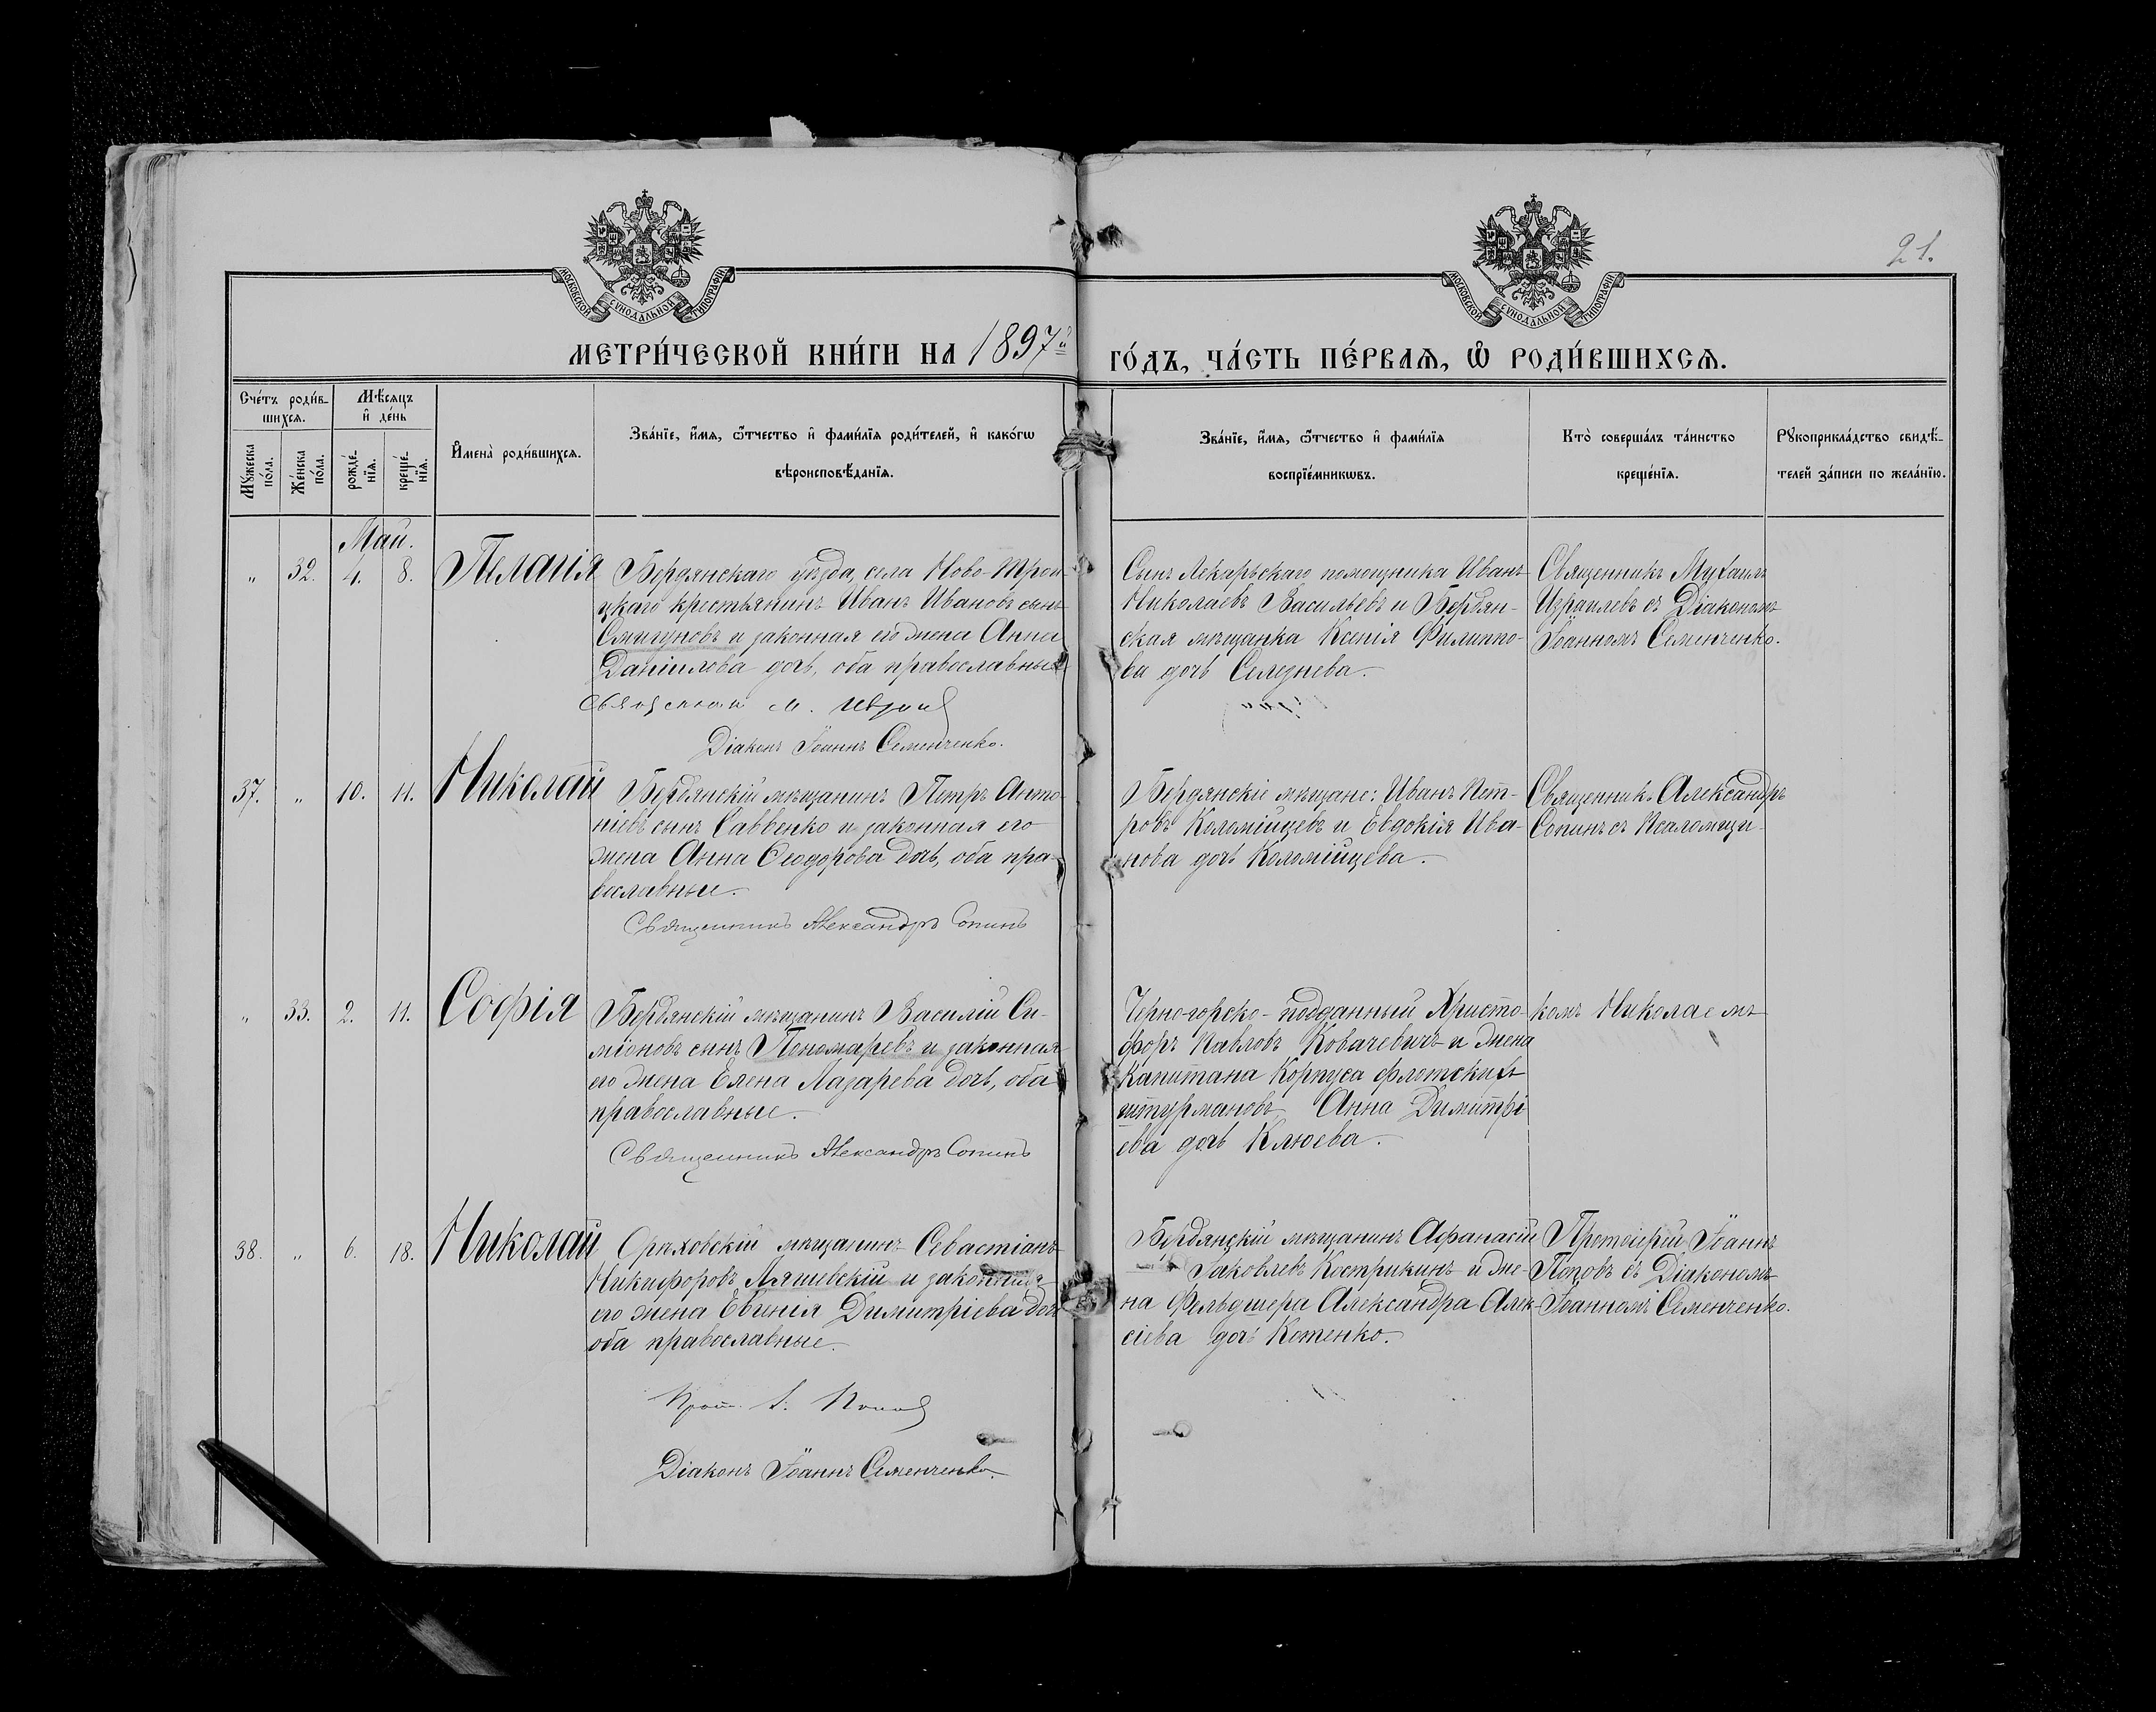 МОСКОВСКОЙ СУНОДАЛЬНОЙ ТИПОГРАФІИ
МОСКОВСКОЙ СУНОДАЛЬНОЙ ТИПОГРАФІИ
21.
МЕТРИ́ЧЕСКОЙ КНИ́ГИ НА 1897й
ГО́ДЪ, ЧА́СТЬ ПЕ́РВАѦ, Ѡ҆ РОДИ́ВШИХСѦ.
Сче́тъ роди́в-
шихсѧ.
Мѣ́сѧцъ
и҆ де́нь
Мꙋ́жеска
по́ла.
Же́нска
по́ла.
рожде́-
нїѧ.
креще́-
нїѧ.
И҆мена̀ роди́вшихсѧ.
Зва́нїе, и҆́мѧ, ѻ҆́тчество и҆ фами́лїѧ роди́телей, и҆ како́гѡ
вѣроисповѣ́данїѧ.
Зва́нїе, и҆́мѧ, ѻ҆́тчество и҆ фами́лїѧ
воспрїе́мникѡвъ.
Кто̀ соверша́лъ та́инство
креще́нїѧ.
Рꙋкоприкла́дство свидѣ́-
телей за́писи по жела́нїю.
Май.
„ 32. 4. 8. Пелагія
Бердянскаго уѣзда, села Ново-Трои-
цкаго крестьянинъ Иванъ Ивановъ сынъ
Смигуновъ и законная его жена Анна
Даніилова дочь, оба православные
Священникъ М.
Діаконъ Іоаннъ Семенченко.
Сынъ Лекарьскаго помощника Иванъ
Николаевъ Васильевъ и Бердян-
ская мѣщанка Ксенія Филиппо-
ва дочь Селезнева.
Священникъ Михаилъ
Израилевъ съ Діакономъ
Іоанномъ Семенченко.
37. „ 10. 11. Николай
Бердянскій мѣщанинъ Петръ Анто-
ніевъ сынъ Саввенко и законная его
жена Анна Ѳеодорова дочь, оба пра-
вославные.
Священникъ Александръ Сопинъ
Бердянскіе мѣщане: Иванъ Пет-
ровъ Коломійцевъ и Евдокія Ива-
нова дочь Коломійцева.
Священникъ Александръ
Сопинъ съ Псаломщи-
„ 33. 2. 11. Софія
Бердянскій мѣщанинъ Василій Си-
міоновъ сынъ Пономаревъ и законная
его жена Елена Лазарева дочь, оба
православные.
Священникъ Александръ Сопинъ
Черно-горско-подданный Христо-
форъ Павловъ Ковачевичъ и жена
Капитана Корпуса флотскихъ
штурмановъ, Анна Димитрі-
ева дочь Клюева.
комъ Николаемъ
38. „ 6. 18. Николай
Орѣховскій мѣщанинъ Севастіанъ
Никифоровъ Ляшевскій и законная
его жена Евгенія Димитріева дочь
оба православные.
Прот. І. Поповъ
Діаконъ Іоаннъ Семенченко.
Бердянскій мѣщанинъ Афанасій
Іаковлевъ Кострикинъ и же-
на Фельдшера Александра Алек-
сіева дочь Котенко.
Протоіерей Іоаннъ
Поповъ съ Діакономъ
Іоанномъ Семенченко.